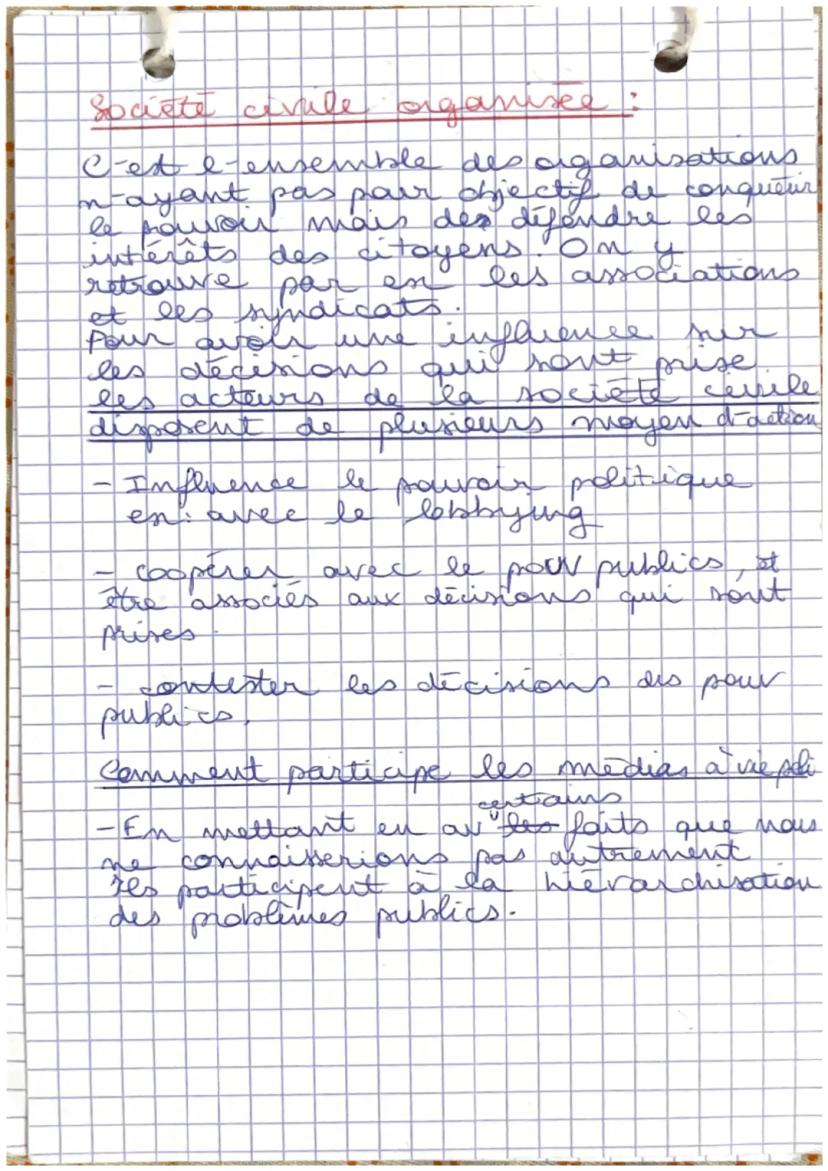 Société civile organisée :
C'est l'ensemble des organisations
n'ayant pas pour objectif de conquérir
le pouvoir mais de défendre les
intérêts des citoyens. On y
retrouve par ex les associations
et les syndicats.
Pour avoir une influence sur
les décisions qui sont prise
les acteurs de la société civile
disposent de plusieurs moyen d'action
- Influence le pouvoir politique
ex: avec le lobbying
- coopérer avec le pouv publics, et
être associés aux décisions qui sont
prises.
- contester les décisions des pouv
publics.
Comment participe les médias à vie poli
certains
- En mettant en av les faits que nous
ne connaisserions pas autrement
Ils participent à la hiérarchisation
des problèmes publics.